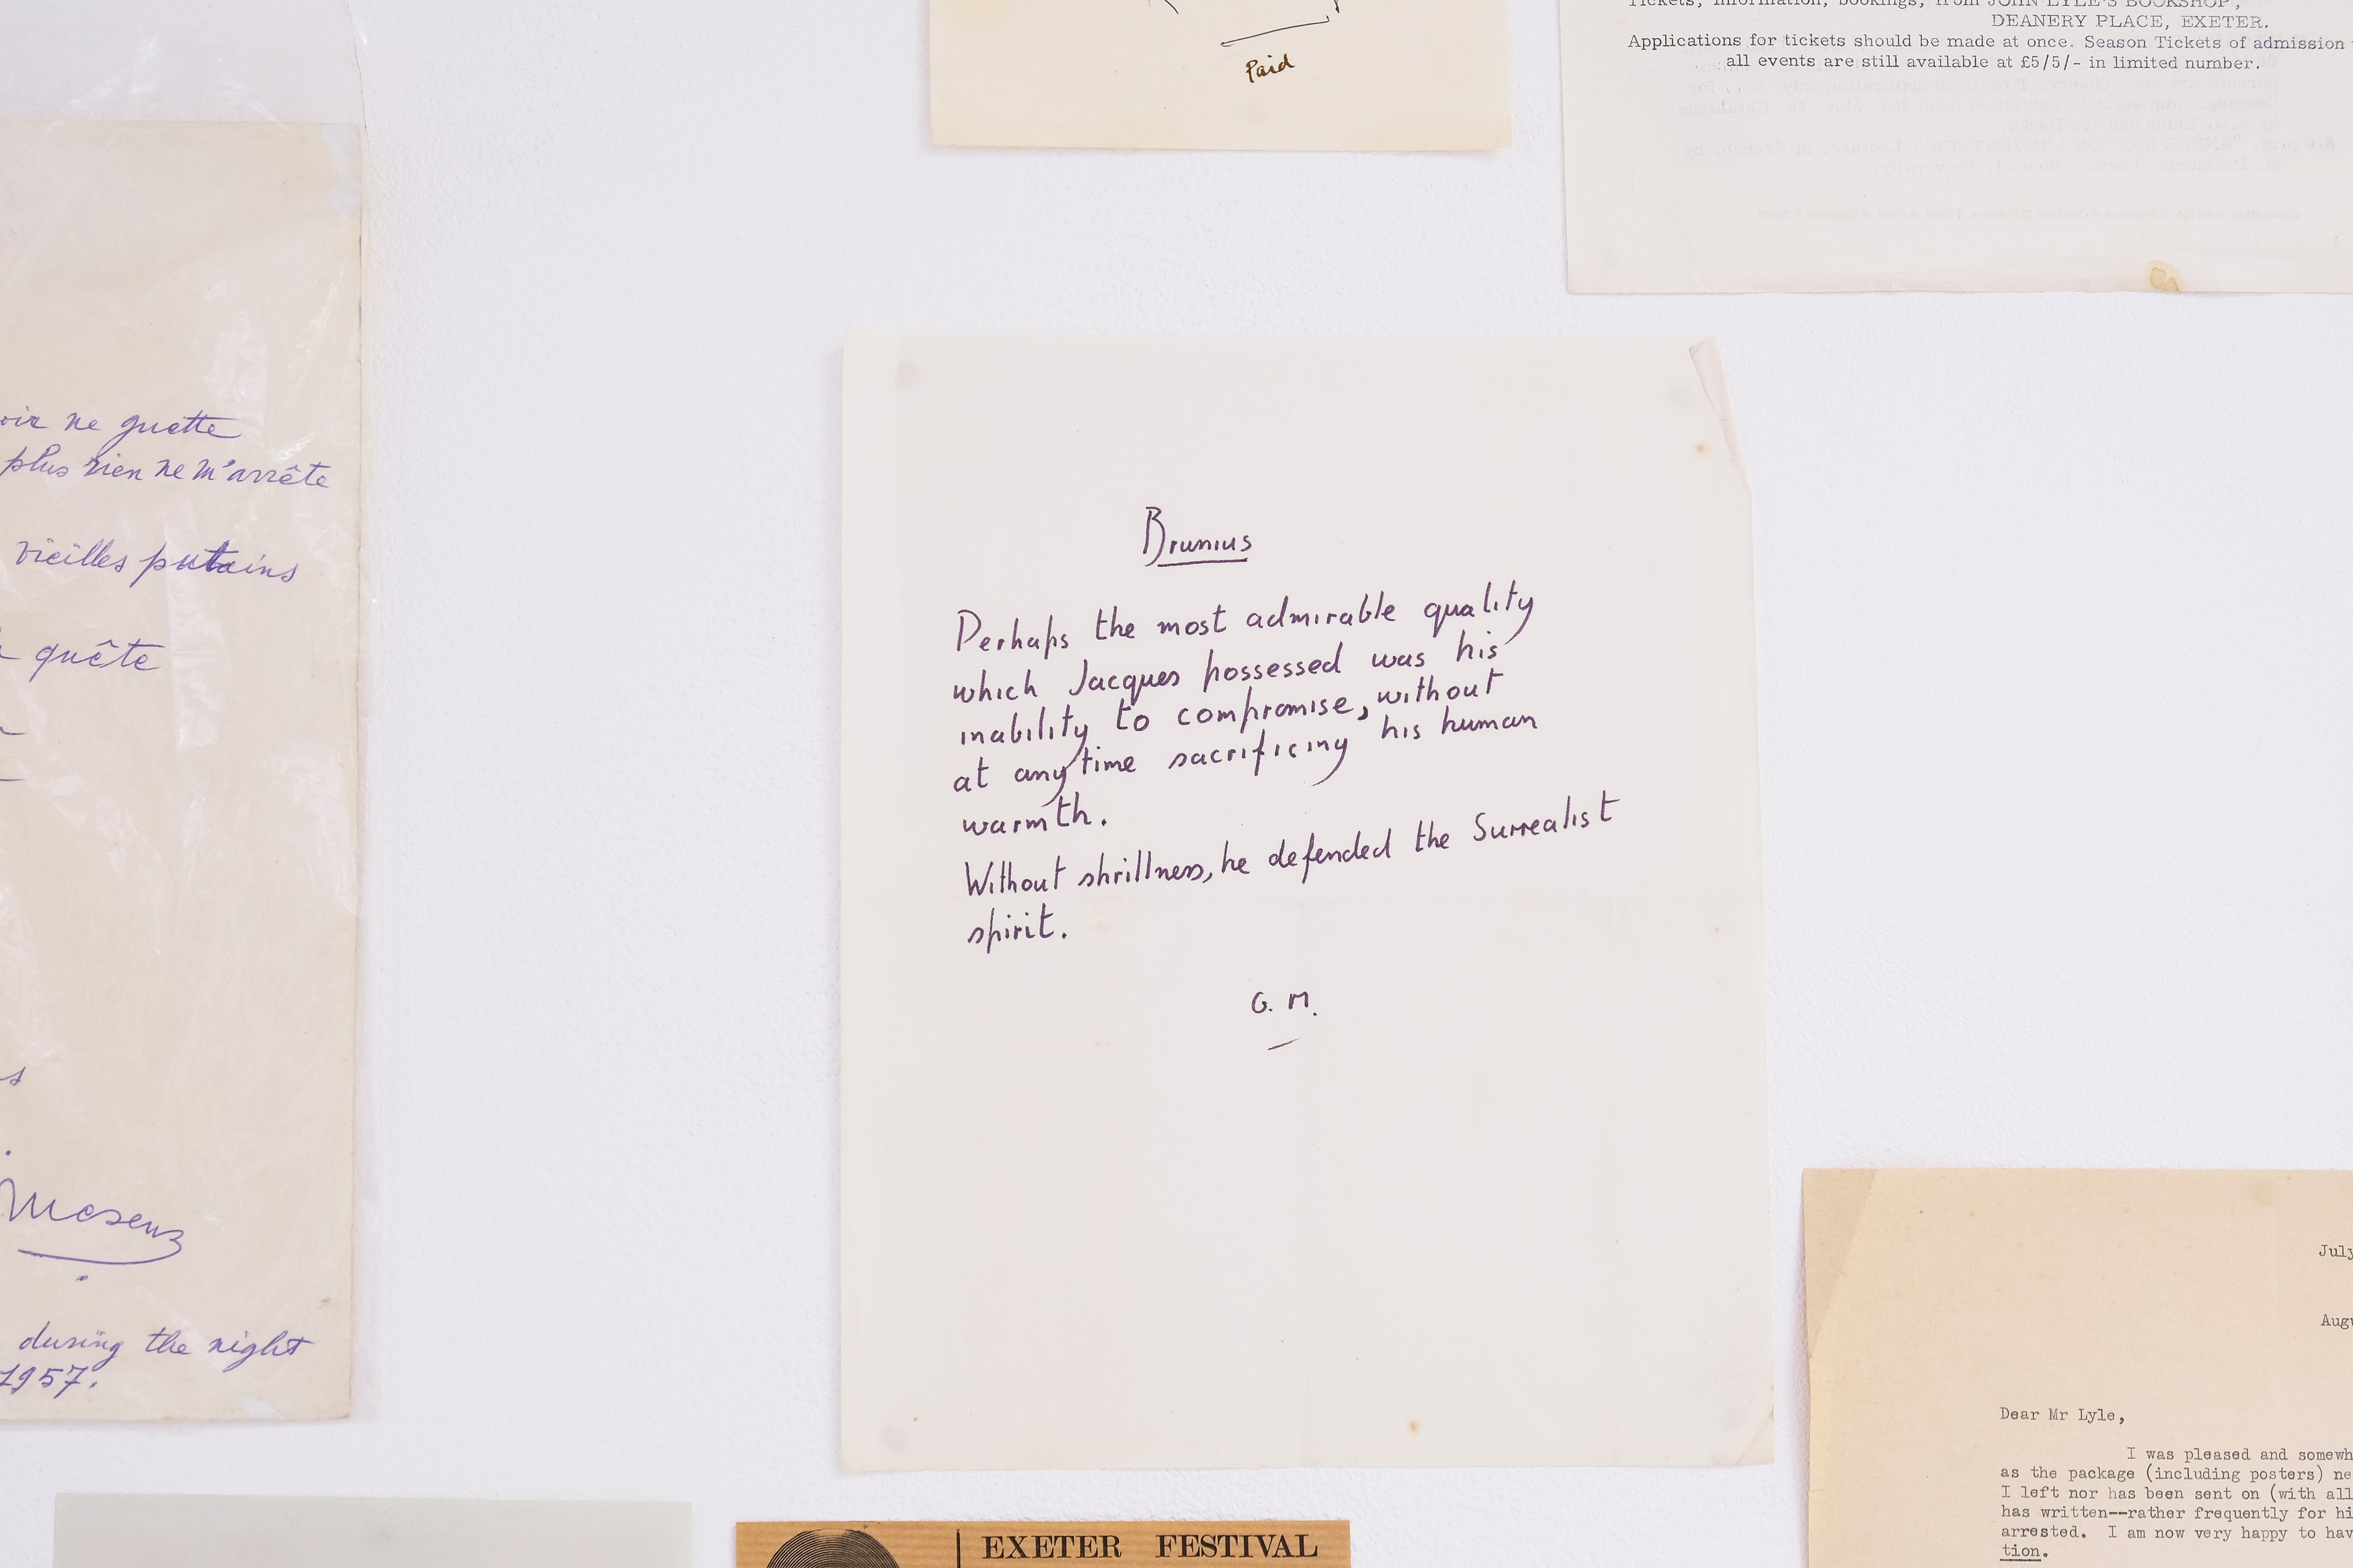 Paid
Tickets, information, bookings, from JOHN LYLE'S BOOKSHOP,
DEANERY PLACE, EXETER.
Applications for tickets should be made at once. Season Tickets of admission
all events are still available at £5/5/- in limited number.
ne guette
plus rien ne m'arrête
vieilles putains
quête
Mesens
during the night
1957.
Brunius
Perhaps the most admirable quality
which Jacques possessed was his
inability to compromise, without
at any time sacrificing his human
warmth.
Without shrillness, he defended the Surrealist
spirit.
G. M.
July
Dear Mr Lyle,
I was pleased and
as the package (including posters)
I left nor has been sent on (with all
has written--rather frequently for
arrested. I am now very happy to
tion.
EXETER FESTIVAL